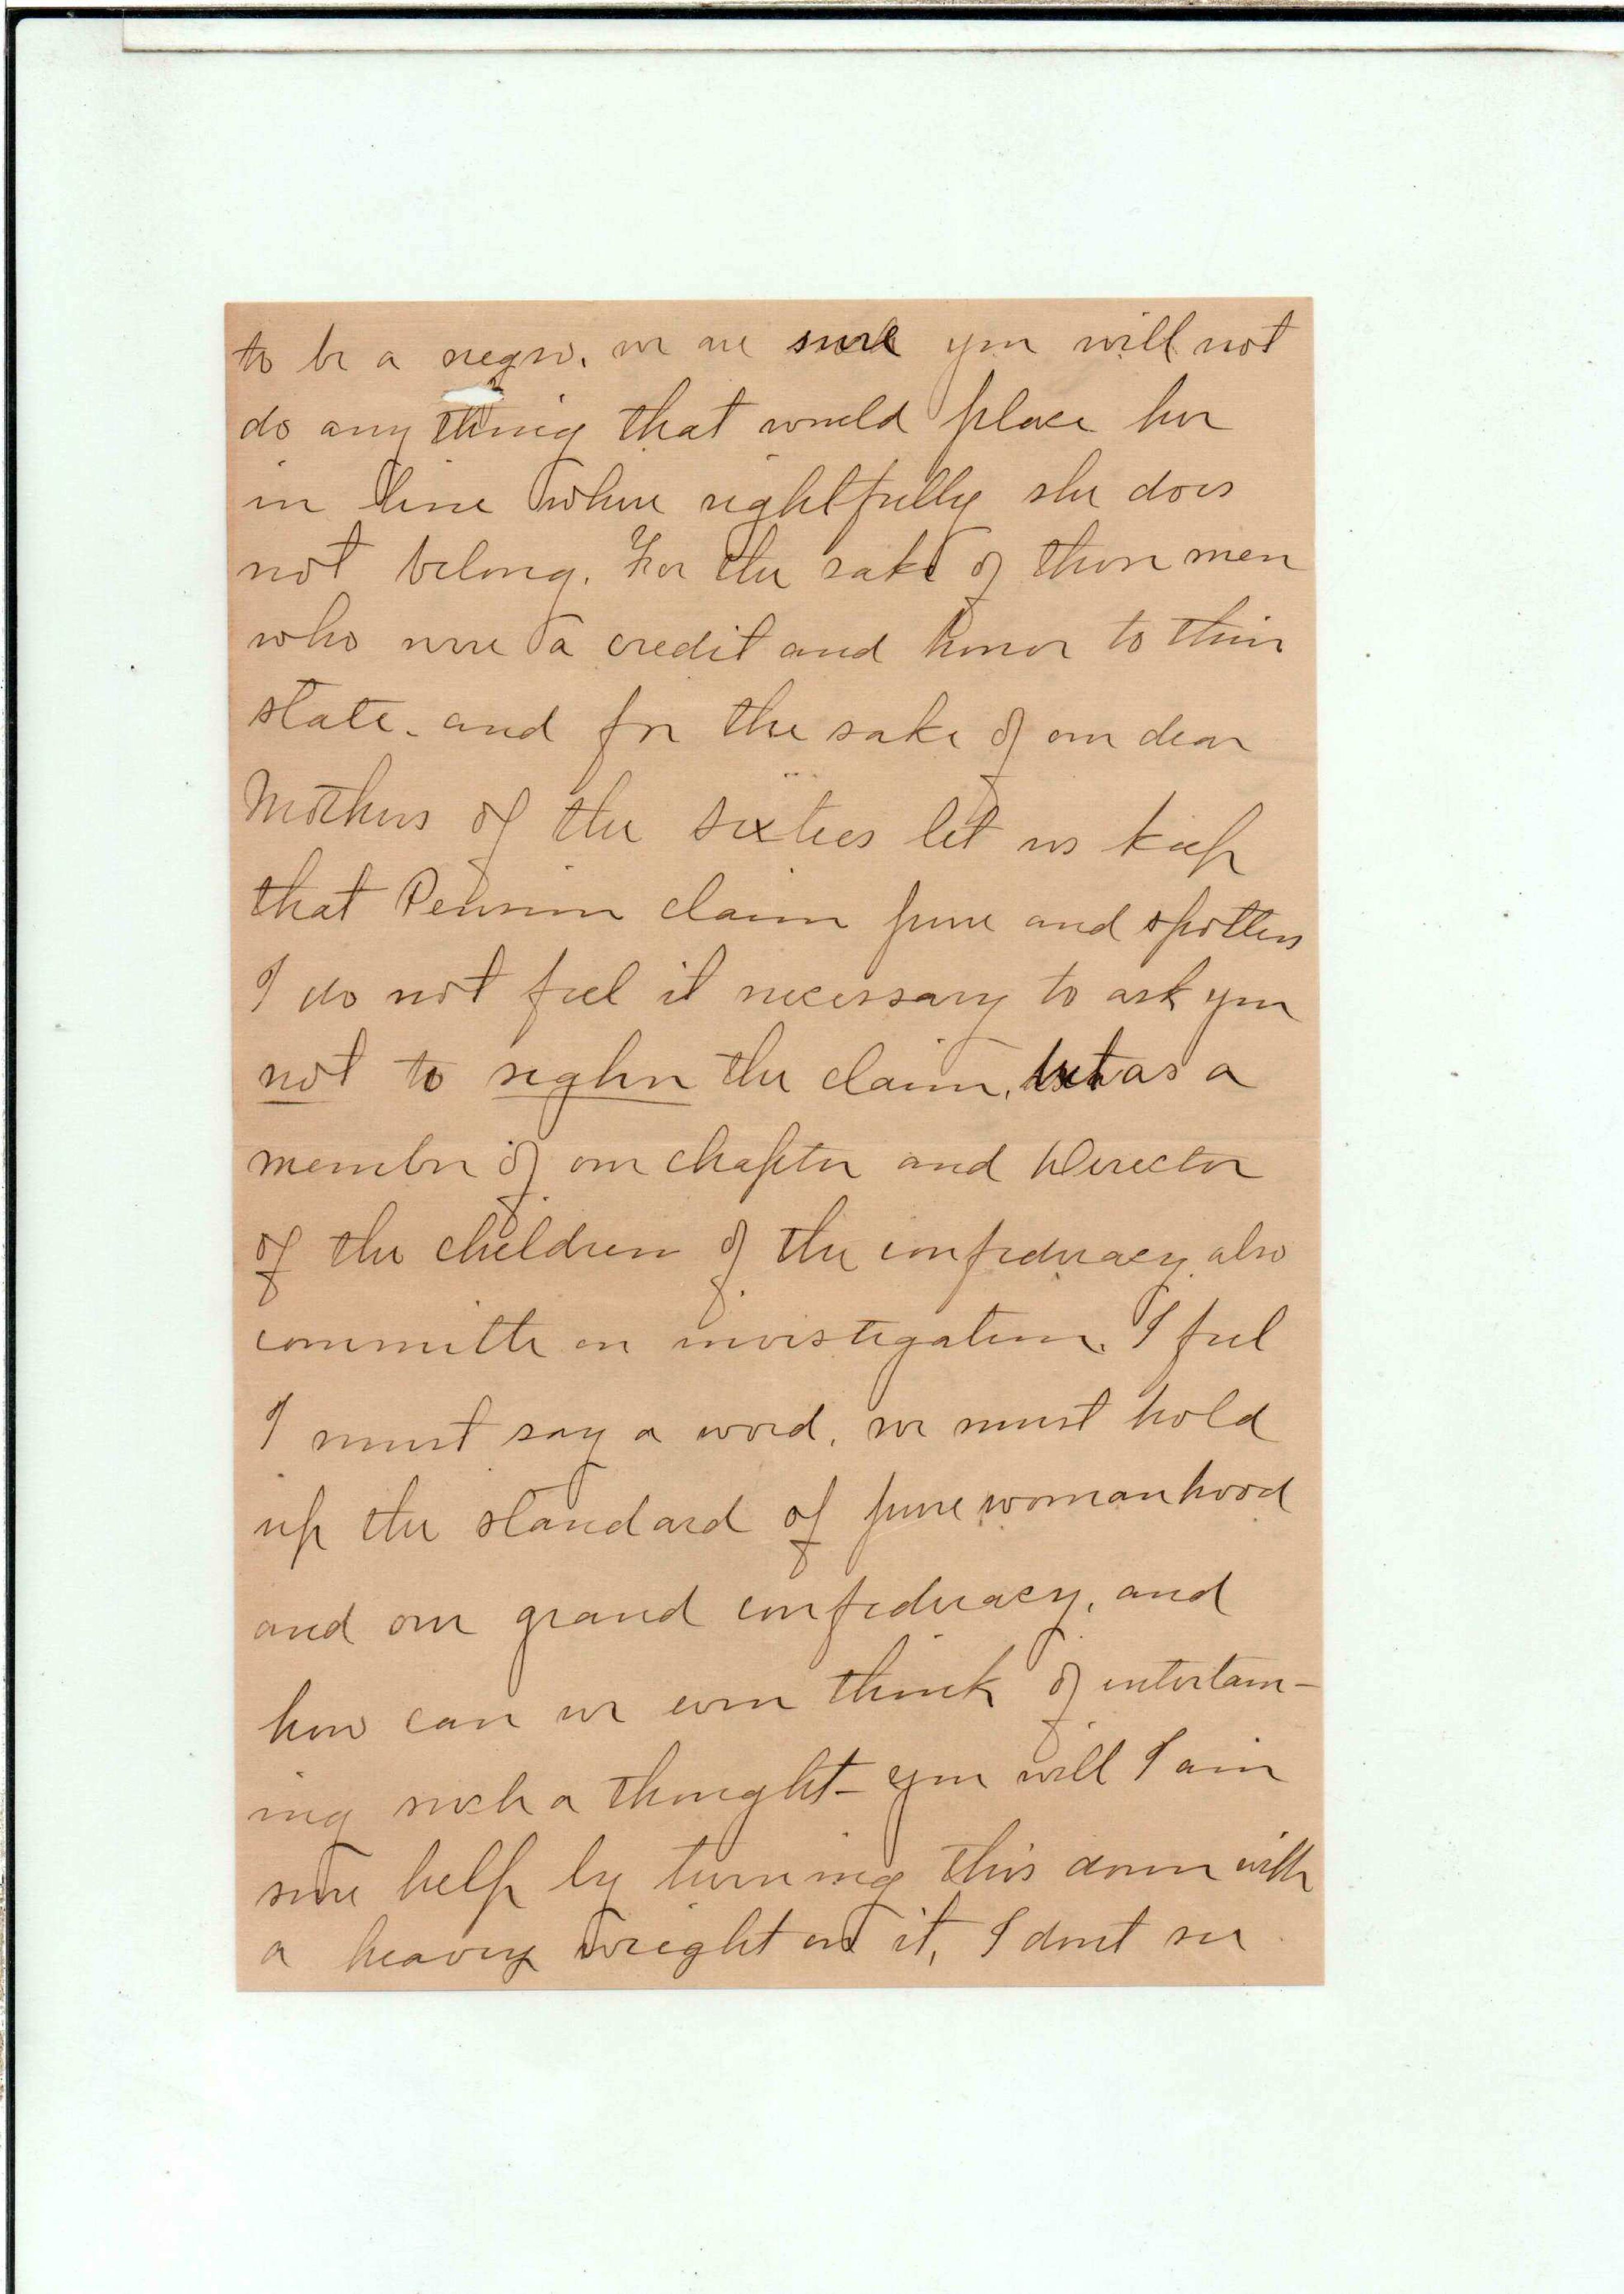 to be a negro. we are sure you will not
do any thing that would place her
in line where rightfully she does
not belong. For the sake of those men
who were a credit and honor to their
state. and for the sake of our dear
Mothers of the sixties let us keep
that Pension claim pure and spotless
I do not feel it necessary to ask you
not to sighn the claim, but as a
member of our chapter and Director
of the children of the confederacy also
committe on investigation. I feel
I must say a word. we must hold
up the standard of pure womanhood
and our grand confederacy, and
how can we even think of entertain-
ing such a thought - you will I am
sure help by turning this down with
a heavy weight on it, I dont see